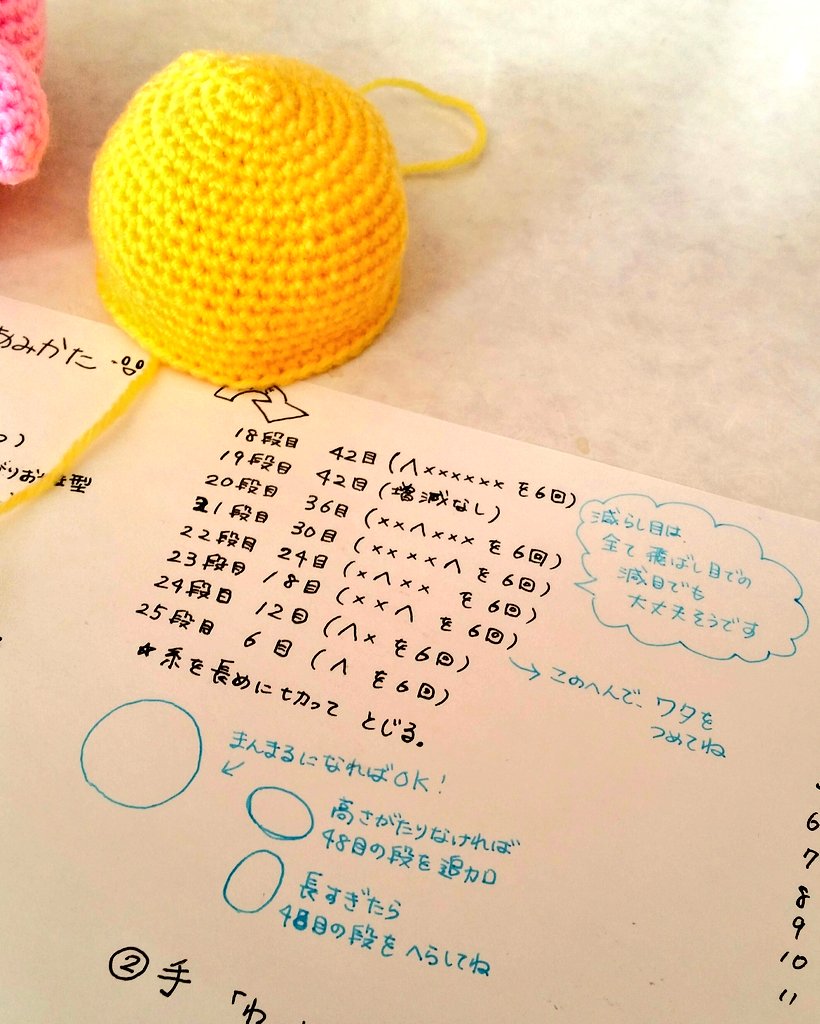 あみかた
18段目 42目 (∧×××××× を6回)
19段目 42目 (増減なし)
20段目 36目 (××∧××× を6回)
21段目 30目 (××××∧ を6回)
22段目 24目 (×∧×× を6回)
23段目 18目 (××∧ を6回)
24段目 12目 (∧× を6回)
25段目 6目 (∧ を6回)
★糸を長めに切って とじる。
減らし目は、
全て飛ばし目での
減目でも
大丈夫そうです
→このへんで、ワタを
つめてね
まんまるになればOK!
高さがたりなければ
48目の段を追加
長すぎたら
48目の段をへらしてね
② 手 「わ
型
6
7
8
9
10
11